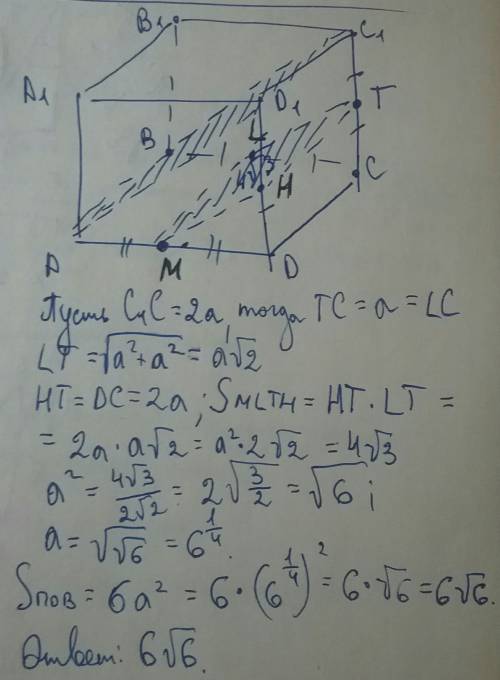 B₁
C₁
A₁
D₁
T
B
L
4√3
H
C
A
M
D
Пусть C₁C = 2a, тогда TC = a = LC
LT = √a²+a² = a√2
HT = DC = 2a; SMLTH = HT · LT =
= 2a · a√2 = a² · 2√2 = 4√3
a² = 4√3/2√2 = 2√3/2 = √6;
a = √√6 = 6^1/4.
Sпов = 6a² = 6 · (6^1/4)² = 6 · √6 = 6√6.
Ответ: 6√6.